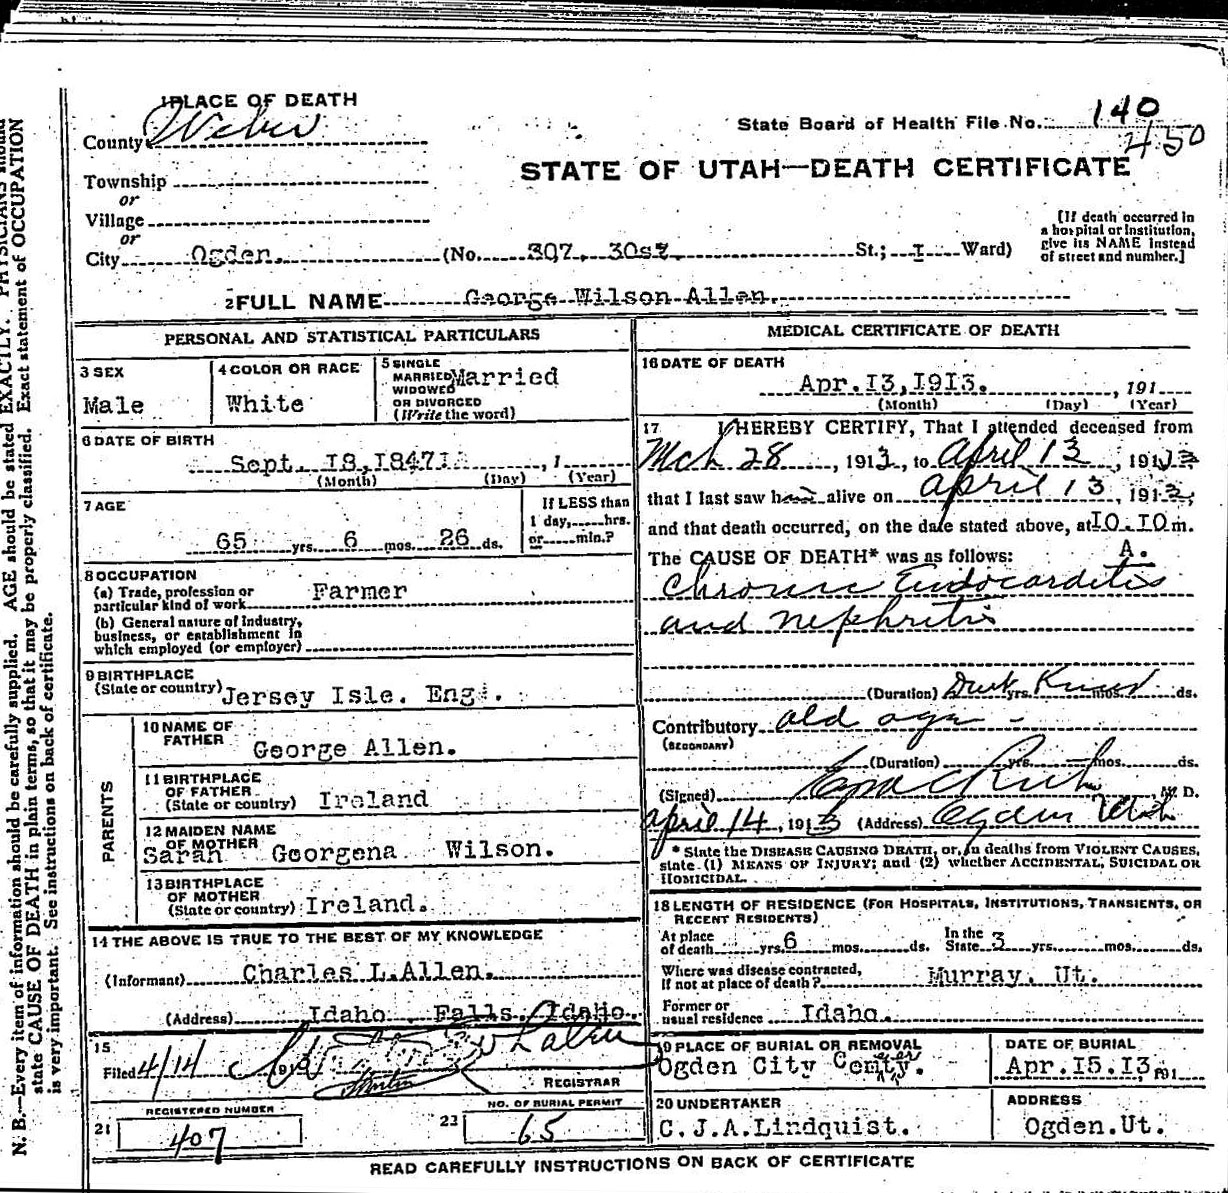 1 PLACE OF DEATH
County Weber
State Board of Health File No. 140
450
STATE OF UTAH—DEATH CERTIFICATE
Township
or
Village
or
City Ogden. (No. 307, 30st. St.; I Ward)
[If death occurred in
a hospital or institution,
give its NAME instead
of street and number.]
2 FULL NAME George Wilson Allen.
PERSONAL AND STATISTICAL PARTICULARS
3 SEX
Male
4 COLOR OR RACE
White
5 SINGLE
MARRIED
WIDOWED
OR DIVORCED
(Write the word)
Married
6 DATE OF BIRTH
Sept. I8,1847 , 1
(Month) (Day) (Year)
7 AGE
65 yrs. 6 mos. 26 ds.
If LESS than
1 day, hrs.
or min.?
8 OCCUPATION
(a) Trade, profession or
particular kind of work Farmer
(b) General nature of Industry,
business, or establishment in
which employed (or employer)
9 BIRTHPLACE
(State or country) Jersey Isle. Eng.
PARENTS
10 NAME OF
FATHER
George Allen.
11 BIRTHPLACE
OF FATHER
(State or country) Ireland
12 MAIDEN NAME
OF MOTHER
Sarah Georgena Wilson.
13 BIRTHPLACE
OF MOTHER
(State or country) Ireland.
14 THE ABOVE IS TRUE TO THE BEST OF MY KNOWLEDGE
(Informant) Charles L.Allen.
(Address) Idaho Falls, Idaho.
15
Filed 4/14
REGISTRAR
REGISTERED NUMBER
21 407
NO. OF BURIAL PERMIT
22 65
MEDICAL CERTIFICATE OF DEATH
16 DATE OF DEATH
Apr.I3,I9I3. , 191
(Month) (Day) (Year)
17 I HEREBY CERTIFY, That I attended deceased from
Mch 28 , 1913, to April 13 , 1913
that I last saw h alive on April 13 , 1913,
and that death occurred, on the date stated above, at I0.I0 m.
A.
The CAUSE OF DEATH* was as follows:
Chronic Endocarditis
and Nephritis
(Duration) Dont Know yrs. mos. ds.
Contributory old age -
(SECONDARY)
(Duration) yrs. mos. ds.
(Signed) Ezra C Rich , M. D.
April 14 , 1913 (Address) Ogden Utah
* State the DISEASE CAUSING DEATH, or, in deaths from VIOLENT CAUSES,
state (1) MEANS OF INJURY; and (2) whether ACCIDENTAL, SUICIDAL OR
HOMICIDAL.
18 LENGTH OF RESIDENCE (FOR HOSPITALS, INSTITUTIONS, TRANSIENTS, OR
RECENT RESIDENTS)
At place
of death yrs. 6 mos. ds. In the
State 3 yrs. mos. ds.
Where was disease contracted,
If not at place of death? Murray. Ut.
Former or
usual residence Idaho.
19 PLACE OF BURIAL OR REMOVAL
Ogden City
DATE OF BURIAL
Apr.I5.I3, 191
20 UNDERTAKER
C.J.A.Lindquist.
ADDRESS
Ogden.Ut.
READ CAREFULLY INSTRUCTIONS ON BACK OF CERTIFICATE
N. B.—Every item of information should be carefully supplied. AGE should be stated EXACTLY. PHYSICIANS should
state CAUSE OF DEATH in plain terms, so that it may be properly classified. Exact statement of OCCUPATION
is very important. See instructions on back of certificate.